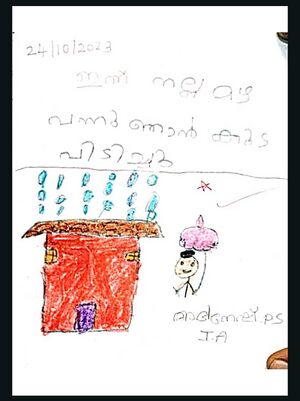 24/10/2023
ഇന്ന് നല്ല മഴ
വന്നു ഞാൻ കുട
പിടിച്ചു
I.A